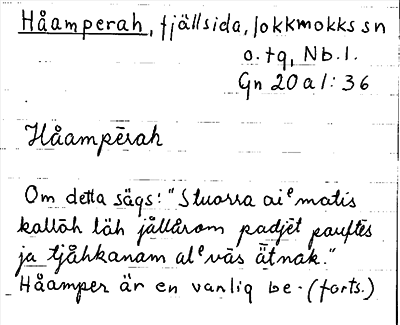 Håamperah, fjällsida, Jokkmokks sn
o. tq, Nb. l.
Gn 20 a 1:36
Håampērah
Om detta sägs: "Stuorra aiᵉmatis
kallōh läh jållårom padjēt pauftēs
ja tjåhkanam alᵉvàs ätnak."
Håamper är en vanlig be- (forts.)